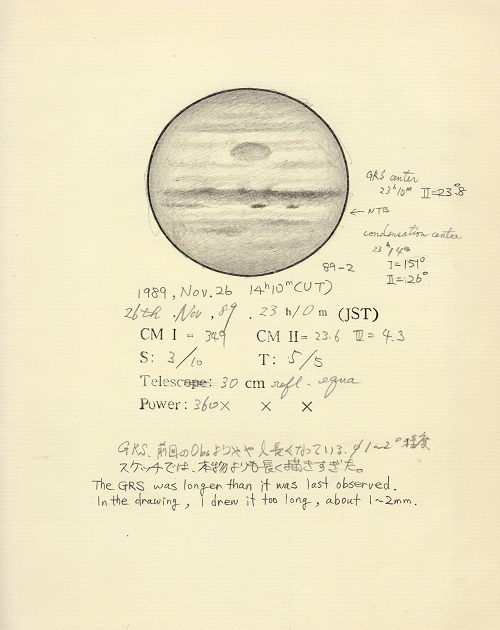 GRS center
23ʰ10ᵐ II=23.°8
← NTB
condensation center
I=151°
II=26°
89-2
1989, Nov. 26 14ʰ10ᵐ(UT)
26th . Nov , 89 . 23 h/0 m (JST)
CM I = 349 CM II= 23.6 III= 4.3
S: 3/10 T: 5/5
Telescope: 30 cm refl. equa
Power: 360× × ×
GRS、前回のObsよりやや長くなっている。1~2°程度
スケッチでは、本物よりも長く描きすぎた。
The GRS was longer than it was last observed.
In the drawing, I drew it too long, about 1~2mm.